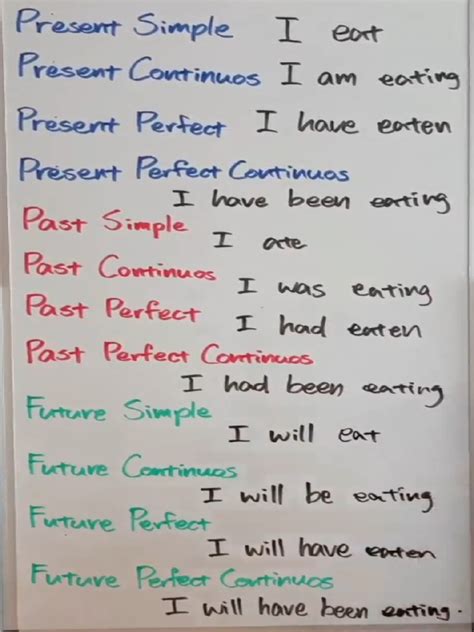 Present Simple I eat
Present Continuos I am eating
Present Perfect I have eaten
Present Perfect Continuos
I have been eating
Past Simple
I ate
Past Continuos
I was eating
Past Perfect
I had eaten
Past Perfect Continuos
I had been eating
Future Simple
I will eat
Future Continuos
I will be eating
Future Perfect
I will have eaten
Future Perfect Continuos
I will have been eating.